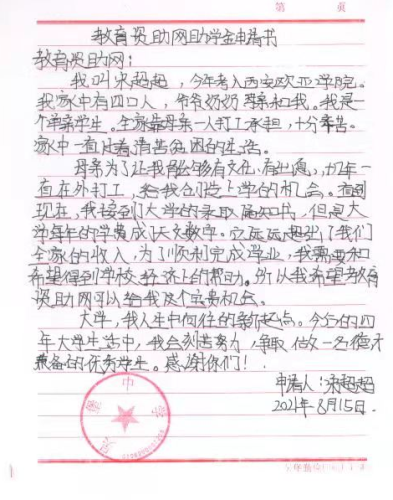 第 页
教育资助网助学金申请书
教育资助网:
我叫宋超超,今年考入西安欧亚学院。
我家中有四口人,爷爷奶奶母亲和我。我是一
个单亲学生。全家靠母亲一人打工承担,十分辛苦。
家中一直过着清苦贫困的生活。
母亲为了让我能够有文化,有出息,几年一
直在外打工,给我创造上学的机会。直到
现在,我接到了大学的录取通知书,但是大
学每年的学费成了天文数字。它远远超出了我们
全家的收入,为了顺利完成学业,我需要和
希望得到学校经济上的帮助。所以我希望教育
资助网可以给我这个宝贵机会。
大学,我人生中向往的新起点。今后的四
年大学生活中,我会刻苦努力,争取做一名德才
兼备的优秀学生。感谢你们!
申请人:宋超超
2021年8月15日.